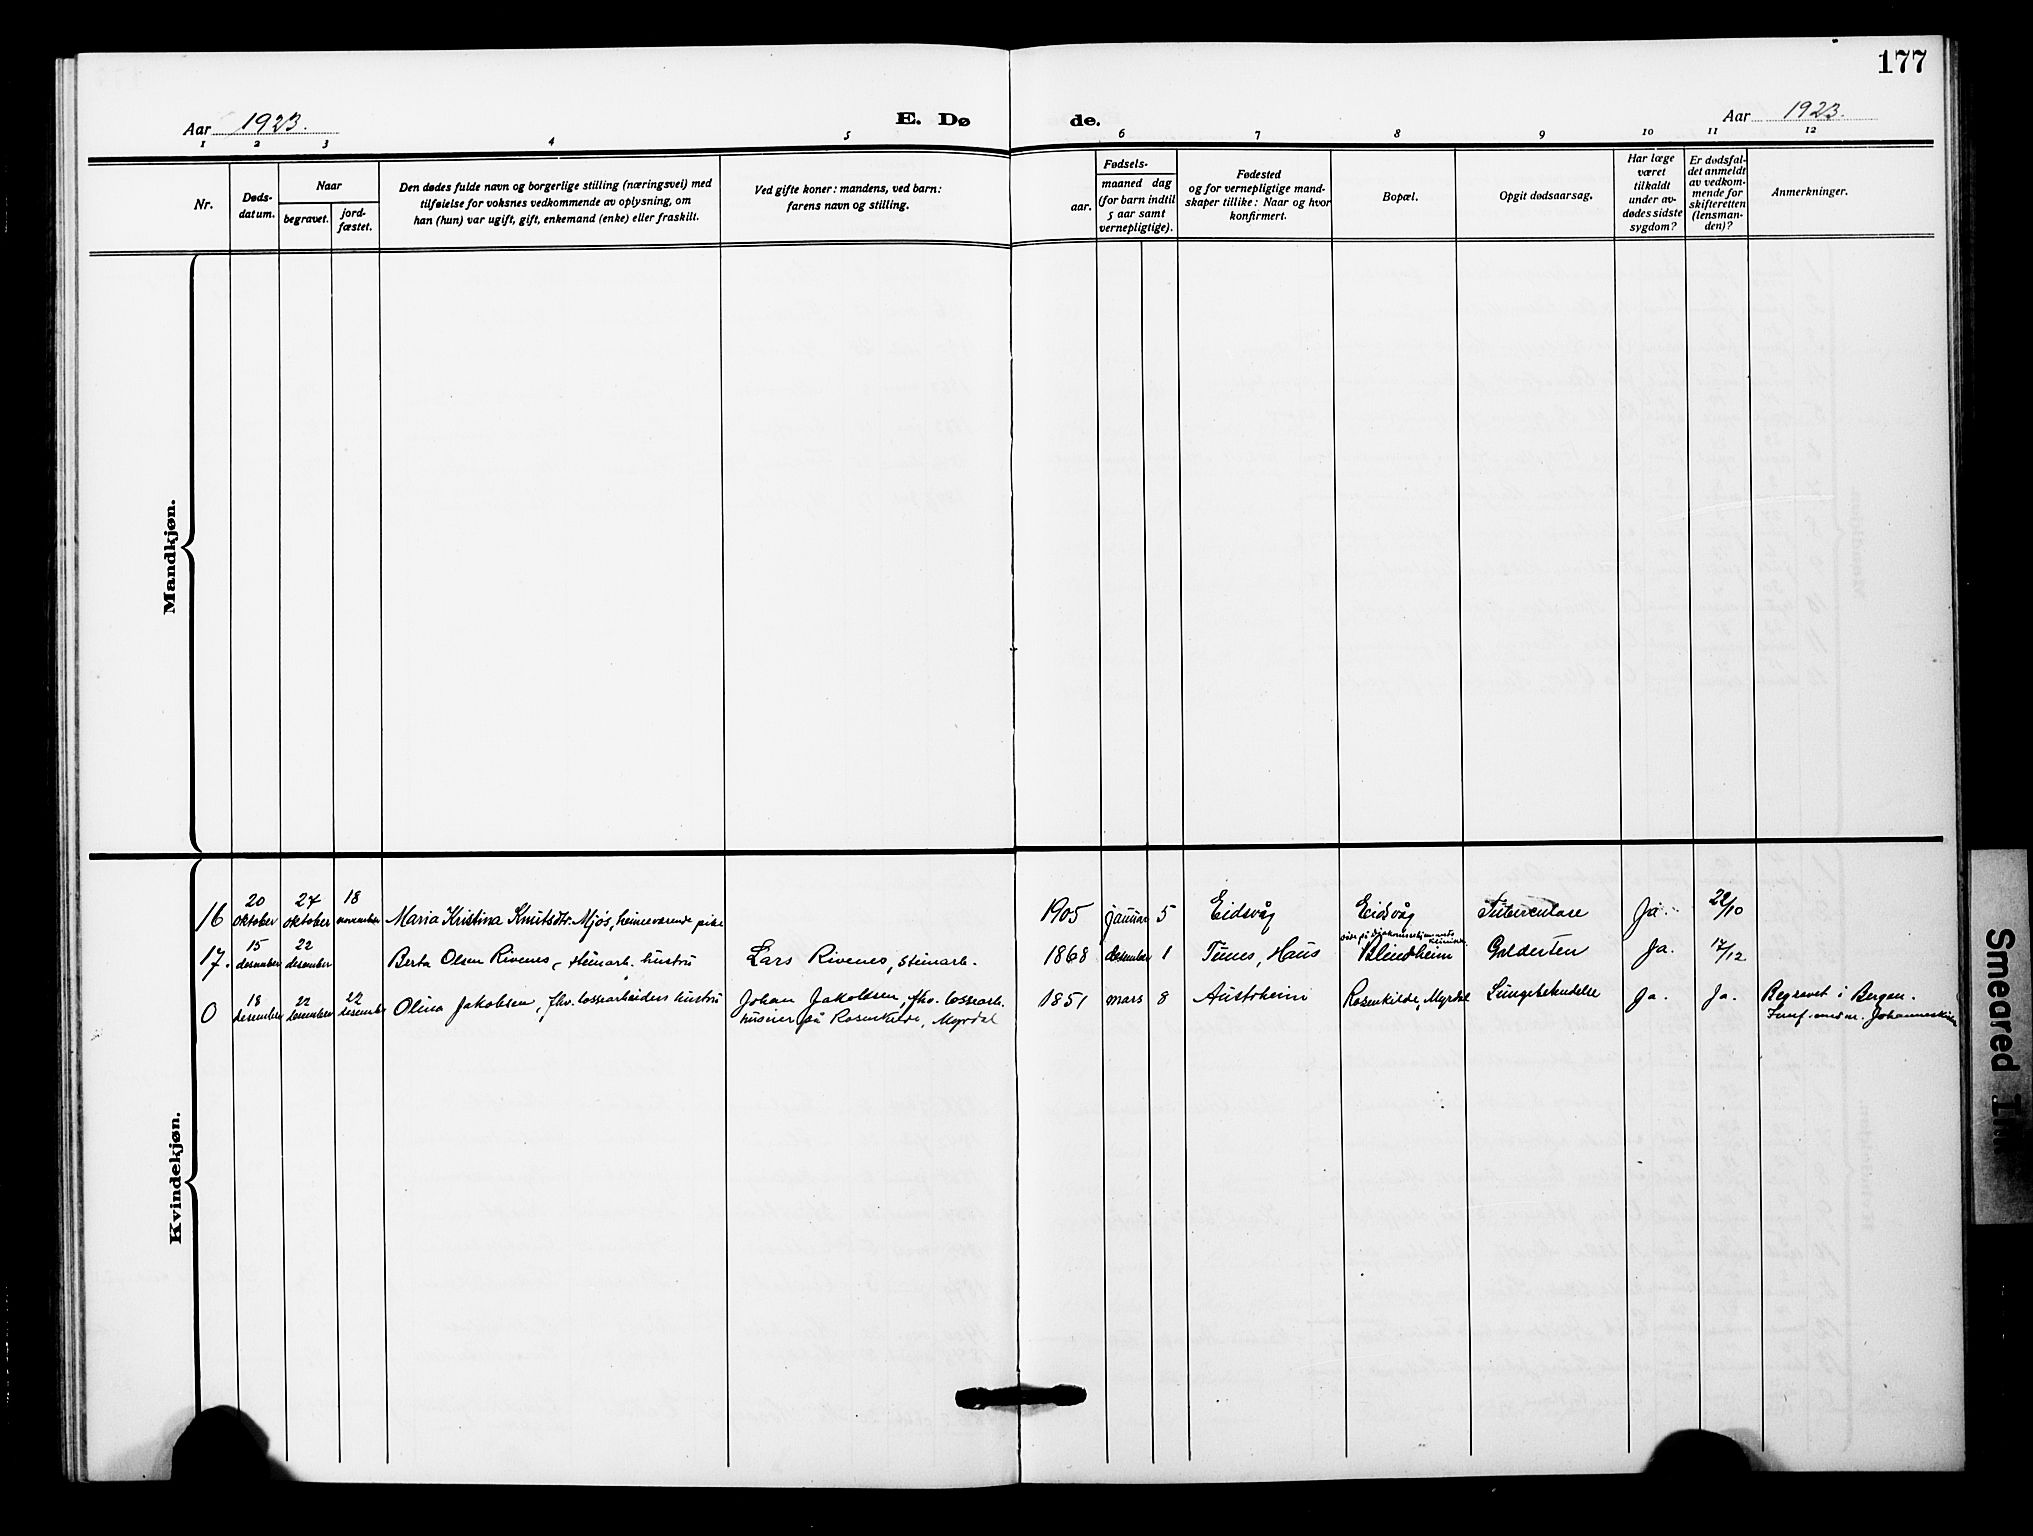 177
Aar 1923.
E. Dø
de.
Aar 1923.
1 2 3 4 5 6 7 8 9 10 11 12
Nr.
Døds-
datum.
Naar
begravet.
jord-
fæstet.
Den dødes fulde navn og borgerlige stilling (næringsvei) med
tilføielse for voksnes vedkommende av oplysning, om
han (hun) var ugift, gift, enkemand (enke) eller fraskilt.
Ved gifte koner: mandens, ved barn:
farens navn og stilling.
Fødsels-
aar.
maaned dag
(for barn indtil
5 aar samt
vernepligtige).
Fødested
og for vernepligtige mand-
skaper tillike: Naar og hvor
konfirmert.
Bopæl.
Opgit dødsaarsag.
Har læge
været
tilkaldt
under av-
dødes sidste
sygdom?
Er dødsfal-
det anmeldt
av vedkom-
mende for
skifteretten
(lensman-
den)?
Anmerkninger.
Mandkjøn.
Kvindekjøn.
16 20 oktober 24 oktober 18 november Maria Kristina Knutsdtr. Mjøs, heimeværende pike 1905 januar 5 Eidsvåg Eidsvåg Tuberculose Ja. 22/10
17. 15 desember 22 desember Berta Olsen Rivenes, steinarb. hustru Lars Rivenes, steinarb. 1868 desember 1 Tunes, Haus Blindheim Galdesten Ja. 17/12
0 18 desember 22 desember 22 desember Olina Jakobsen, fhv. lossearbeiders hustru Johan Jakobsen, fhv. lossearb. 1851 mars 8 Austrheim Rosenkilde, Myrdal Lungebetendelse Ja. Ja. Begravet i Bergen.
huseier på Rosenkilde, Myrdal Johanneskirken
Smeared